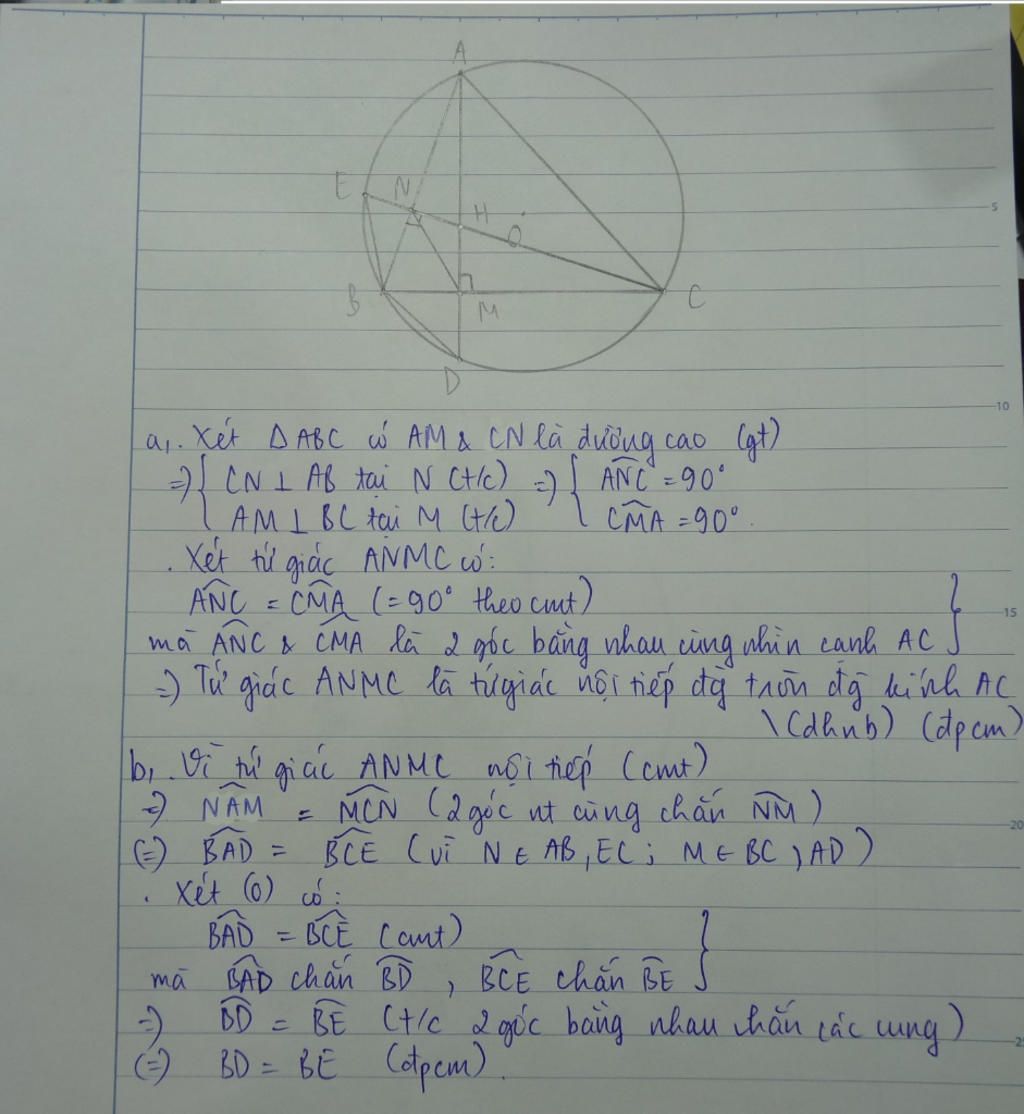 A
E
N
H
O
5
B
M
C
D
10
a, . Xét ΔABC có AM & CN là đường cao (gt)
=> { CN ⊥ AB tại N (t/c) => { ANC = 90°
AM ⊥ BC tại M (t/c) CMA = 90°.
. Xét tứ giác ANMC có:
ANC = CMA (= 90° theo cmt)
15
mà ANC & CMA là 2 góc bằng nhau cùng nhìn cạnh AC }
=> Tứ giác ANMC là tứ giác nội tiếp đg tròn đg kính AC
\(dhnb) (đpcm)
b, . Vì tứ giác ANMC nội tiếp (cmt)
=> NAM = MCN (2 góc nt cùng chắn NM)
20
(=) BAD = BCE (vì N ∈ AB, EC; M ∈ BC, AD)
. Xét (O) có:
BAD = BCE (cmt)
mà BAD chắn BD, BCE chắn BE }
=> BD = BE (t/c 2 góc bằng nhau chắn các cung)
25
(=) BD = BE (đpcm).